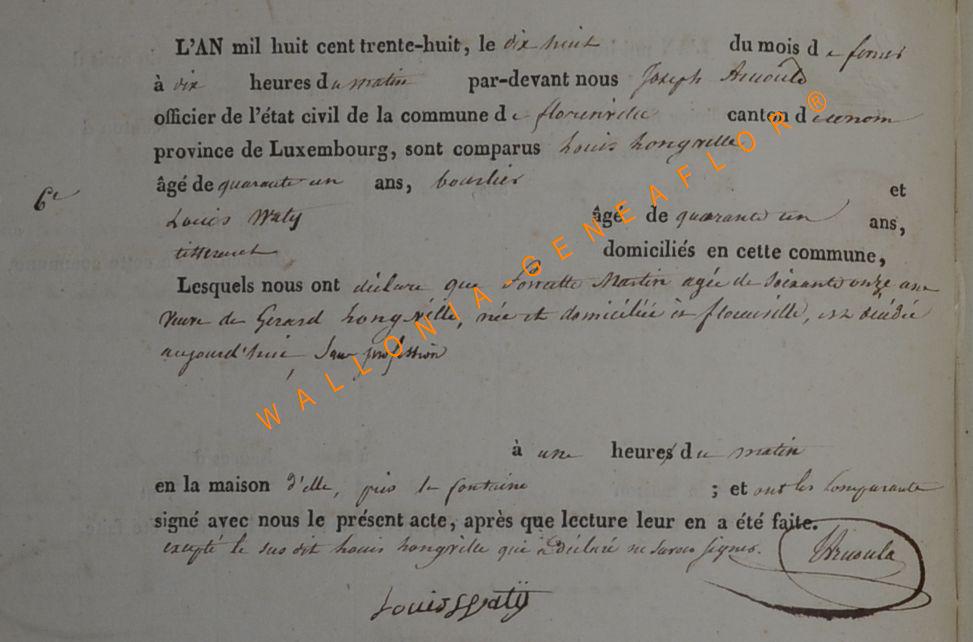 L'AN mil huit cent trente-huit, le dix huit du mois de fevrier
à dix heures du matin par-devant nous Joseph Arnould
officier de l'état civil de la commune de florenville canton d
province de Luxembourg, sont comparus Louis Longville
6e âgé de quarante un ans, bourlier et
Louis Waty âgé de quarante un ans,
tisserand domiciliés en cette commune,
Lesquels nous ont déclaré que Martin agée de Soixante onze ans
veuve de Gerard Longville, née et domiciliée à florenville, est décédée
aujourd'hui, Sans profession
à une heure du matin
en la maison d'elle, près la fontaine ; et ont les Comparants
signé avec nous le présent acte, après que lecture leur en a été faite.
excepté le sus dit Louis Longville qui a déclaré ne savoir signer. Arnould
Louis Waty
WALLONIA-GENEAFLOR®